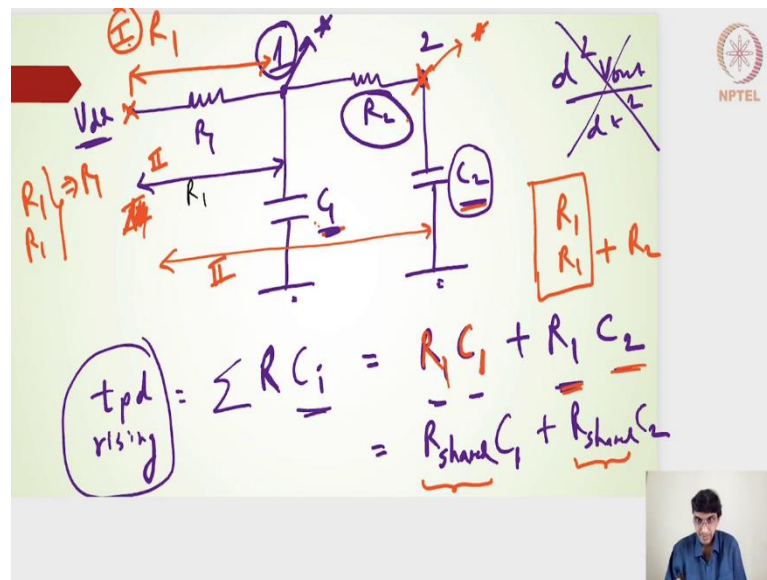 I. R1
1
2
*
*
Vdd
R1
R2
d² Vout
dt²
NPTEL
II
R1
C1
C2
R1 } ⇒ R1
R1
II
R1
R1 + R2
tpd rising = Σ R Ci = R1 C1 + R1 C2
= Rshared C1 + Rshared C2